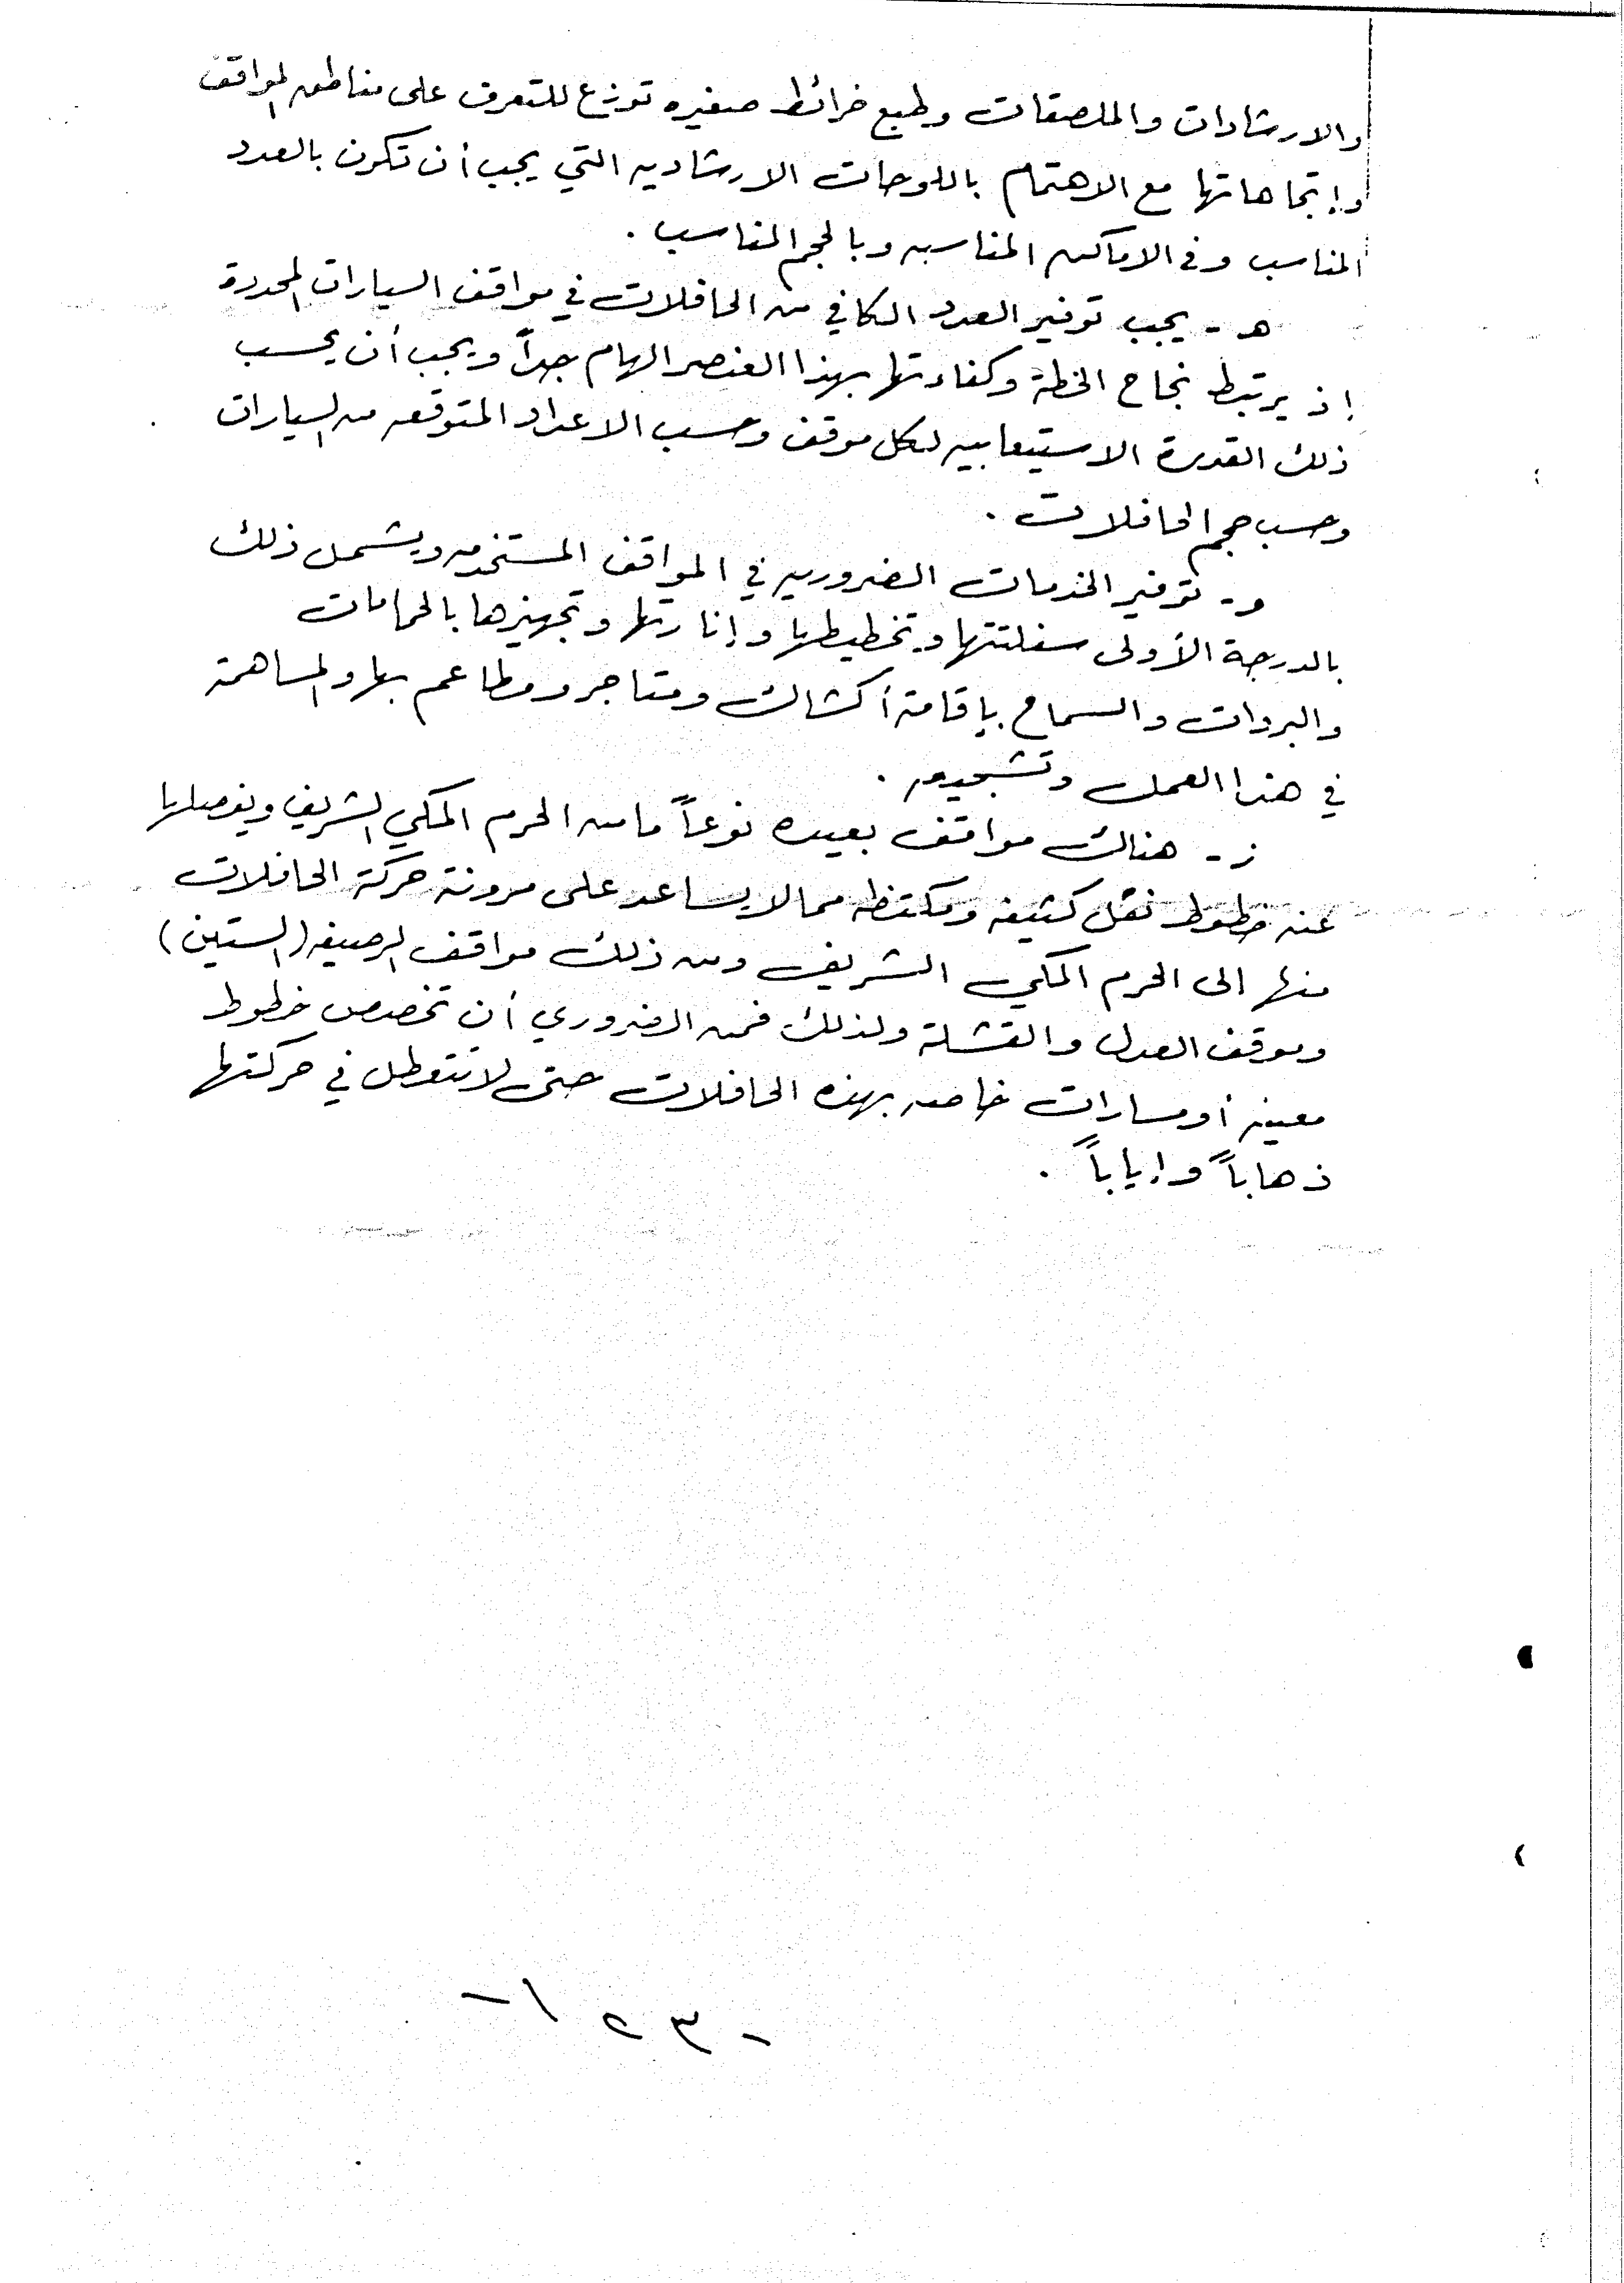 والارشادات والملصقات وطبع خرائط صغيره توزع للتعرف على مناطق المواقف
وإتجاهاتها مع الاهتمام باللوحات الارشاديه التي يجب أن تكون بالعدد
المناسب وفي الاماكن المناسبه وبالحجم المناسب .
هـ - يجب توفير العدد الكافي من الحافلات في مواقف السيارات المحددة
إذ يرتبط نجاح الخطة وكفاءتها بهذا العنصر الهام جداً ويجب أن يحسب
ذلك القدرة الاستيعابيه لكل موقف وحسب الاعداد المتوقعه من السيارات
وحسب حجم الحافلات .
و - توفير الخدمات الضروريه في المواقف المستخدمه ويشمل ذلك
بالدرجة الأولى سفلتتها وتخطيطها وإنارتها وتجهيزها بالحمامات
والبردات والسماح بإقامة أكشاك ومتاجر ومطاعم بها والمساهمة
في هذا العمل وتشجيعه .
ز - هناك مواقف بعيده نوعاً ما من الحرم المكي الشريف ويفصلها
عنه خطوط نقل كثيفه ومكتظه مما لا يساعد على مرونة حركة الحافلات
منها الى الحرم المكي الشريف ومن ذلك مواقف الرصيفه (الستين)
وموقف العدل والقشلة ولذلك فمن الضروري أن تخصص خطوط
معينه أو مسارات خاصه بهذه الحافلات حتى لا تتعطل في حركتها
ذهاباً وإياباً .
- ١٢٣ -